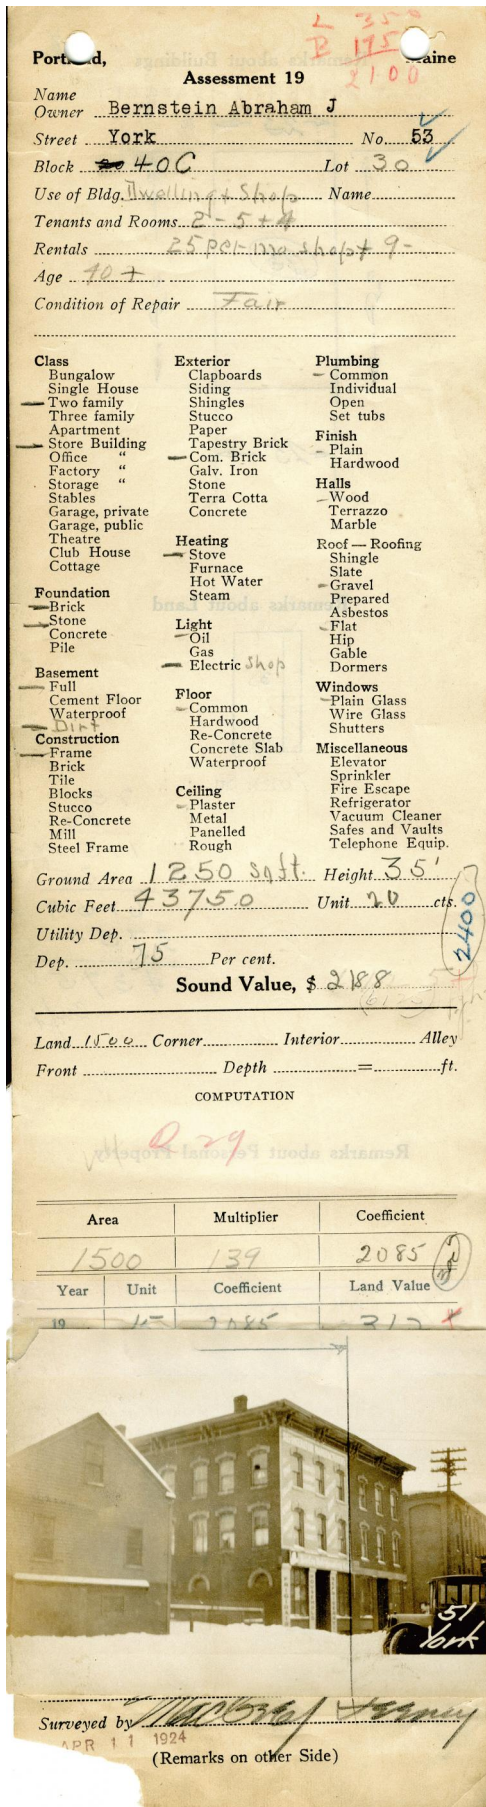 L 350
B 1750
2100
Portland, Maine
Assessment 19
Name
Owner Bernstein Abraham J
Street York No. 53
Block 40C Lot 30
Use of Bldg. Dwelling & Shop Name
Tenants and Rooms 2-5+4
Rentals 25 per mo shop + 9-
Age 40+
Condition of Repair Fair
Class
Bungalow
Single House
Two family
Three family
Apartment
Store Building
Office "
Factory "
Storage "
Stables
Garage, private
Garage, public
Theatre
Club House
Cottage
Foundation
Brick
Stone
Concrete
Pile
Basement
Full
Cement Floor
Waterproof
Dirt
Construction
Frame
Brick
Tile
Blocks
Stucco
Re-Concrete
Mill
Steel Frame
Exterior
Clapboards
Siding
Shingles
Stucco
Paper
Tapestry Brick
Com. Brick
Galv. Iron
Stone
Terra Cotta
Concrete
Heating
Stove
Furnace
Hot Water
Steam
Light
Oil
Gas
Electric Shop
Floor
Common
Hardwood
Re-Concrete
Concrete Slab
Waterproof
Ceiling
Plaster
Metal
Panelled
Rough
Plumbing
Common
Individual
Open
Set tubs
Finish
Plain
Hardwood
Halls
Wood
Terrazzo
Marble
Roof — Roofing
Shingle
Slate
Gravel
Prepared
Asbestos
Flat
Hip
Gable
Dormers
Windows
Plain Glass
Wire Glass
Shutters
Miscellaneous
Elevator
Sprinkler
Fire Escape
Refrigerator
Vacuum Cleaner
Safes and Vaults
Telephone Equip.
Ground Area 1250 sq ft. Height 35'
Cubic Feet 43750 Unit 20 cts.
2400
Utility Dep.
Dep. 75 Per cent.
Sound Value, $ 2188
Land 1500 Corner Interior Alley
Front Depth = ft.
COMPUTATION
Q 29
Area Multiplier Coefficient
1500 139 2085
Year Unit Coefficient Land Value
19 15 2085 312
51
York
Surveyed by
APR 11 1924
(Remarks on other Side)